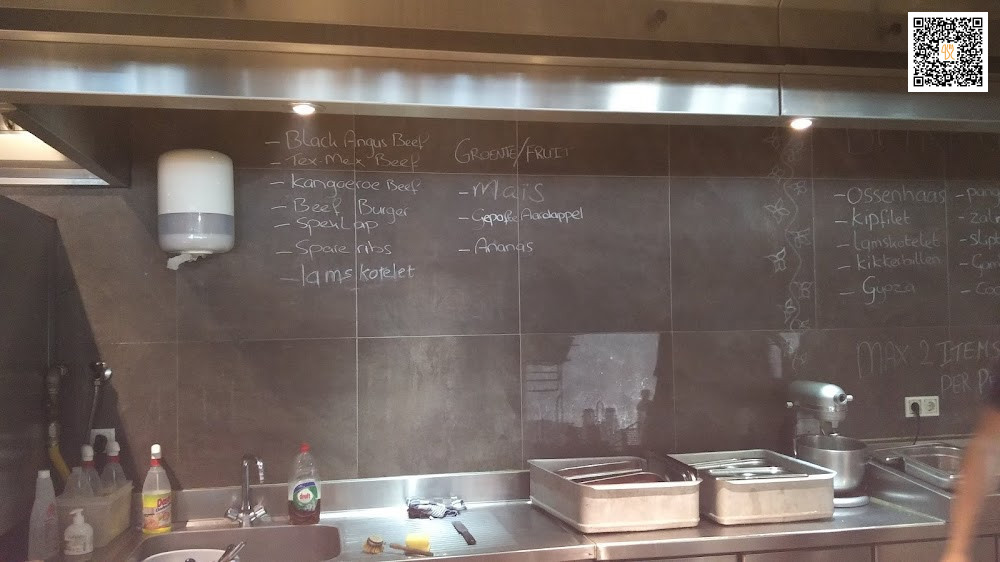 - Black Angus Beef
- Tex-Mex Beef
- Kangoeroe Beef
- Beef Burger
- Speklap
- Spare ribs
- lams kotelet
GROENTE/FRUIT
- Maïs
- Gepofte Aardappel
- Ananas
- Ossenhaas
- kipfilet
- Lamskotelet
- kikkerbillen
- Gyoza
MAX 2 ITEMS
PER